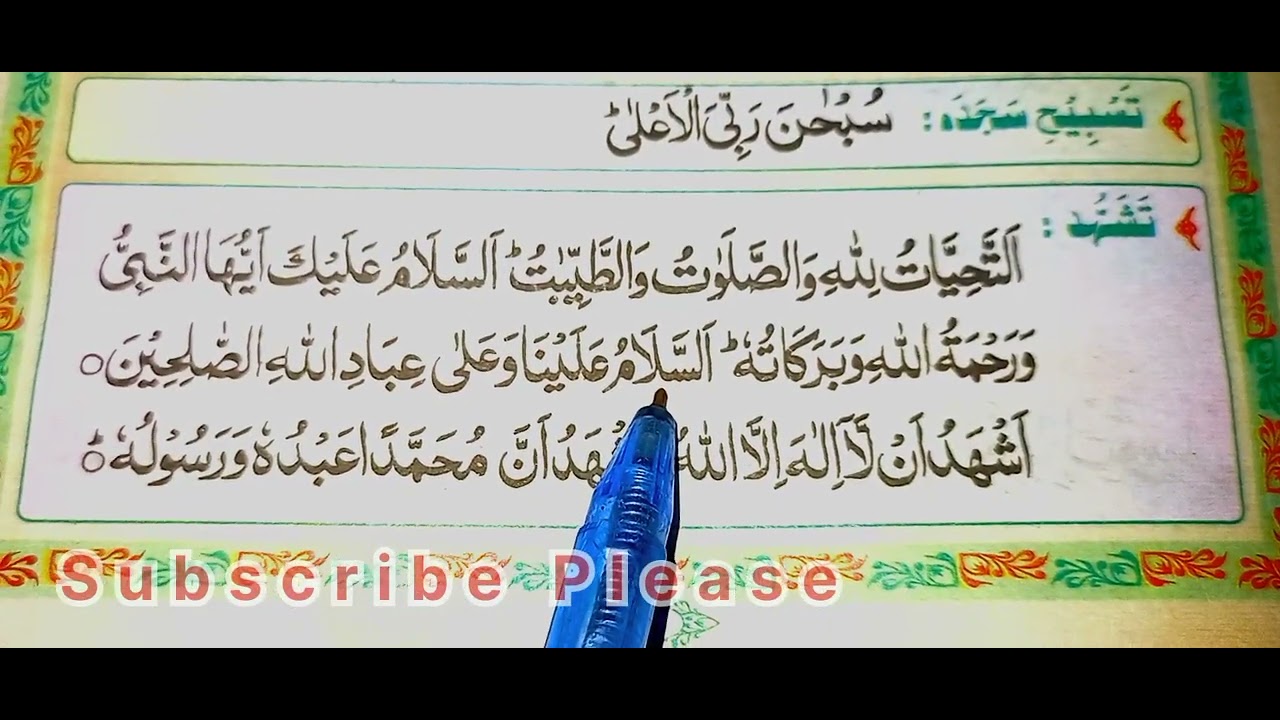 تَسْبِيْحِ سَجَدَہ: سُبْحٰنَ رَبِّیَ الْاَعْلٰیؕ
تَشَهُّد: اَلتَّحِيَّاتُ لِلّٰهِ وَالصَّلَوٰتُ وَالطَّيِّبٰتُؕ اَلسَّلَامُ عَلَيْكَ اَيُّهَا النَّبِیُّ
وَرَحْمَةُ اللّٰهِ وَبَرَكَاتُهٗؕ اَلسَّلَامُ عَلَيْنَا وَعَلٰی عِبَادِ اللّٰهِ الصّٰلِحِيْنَ○
اَشْهَدُ اَنْ لَّاۤ اِلٰهَ اِلَّا اللّٰهُ اَنَّ مُحَمَّدًا عَبْدُهٗ وَرَسُوْلُهٗ○ؕ
Subscribe Please